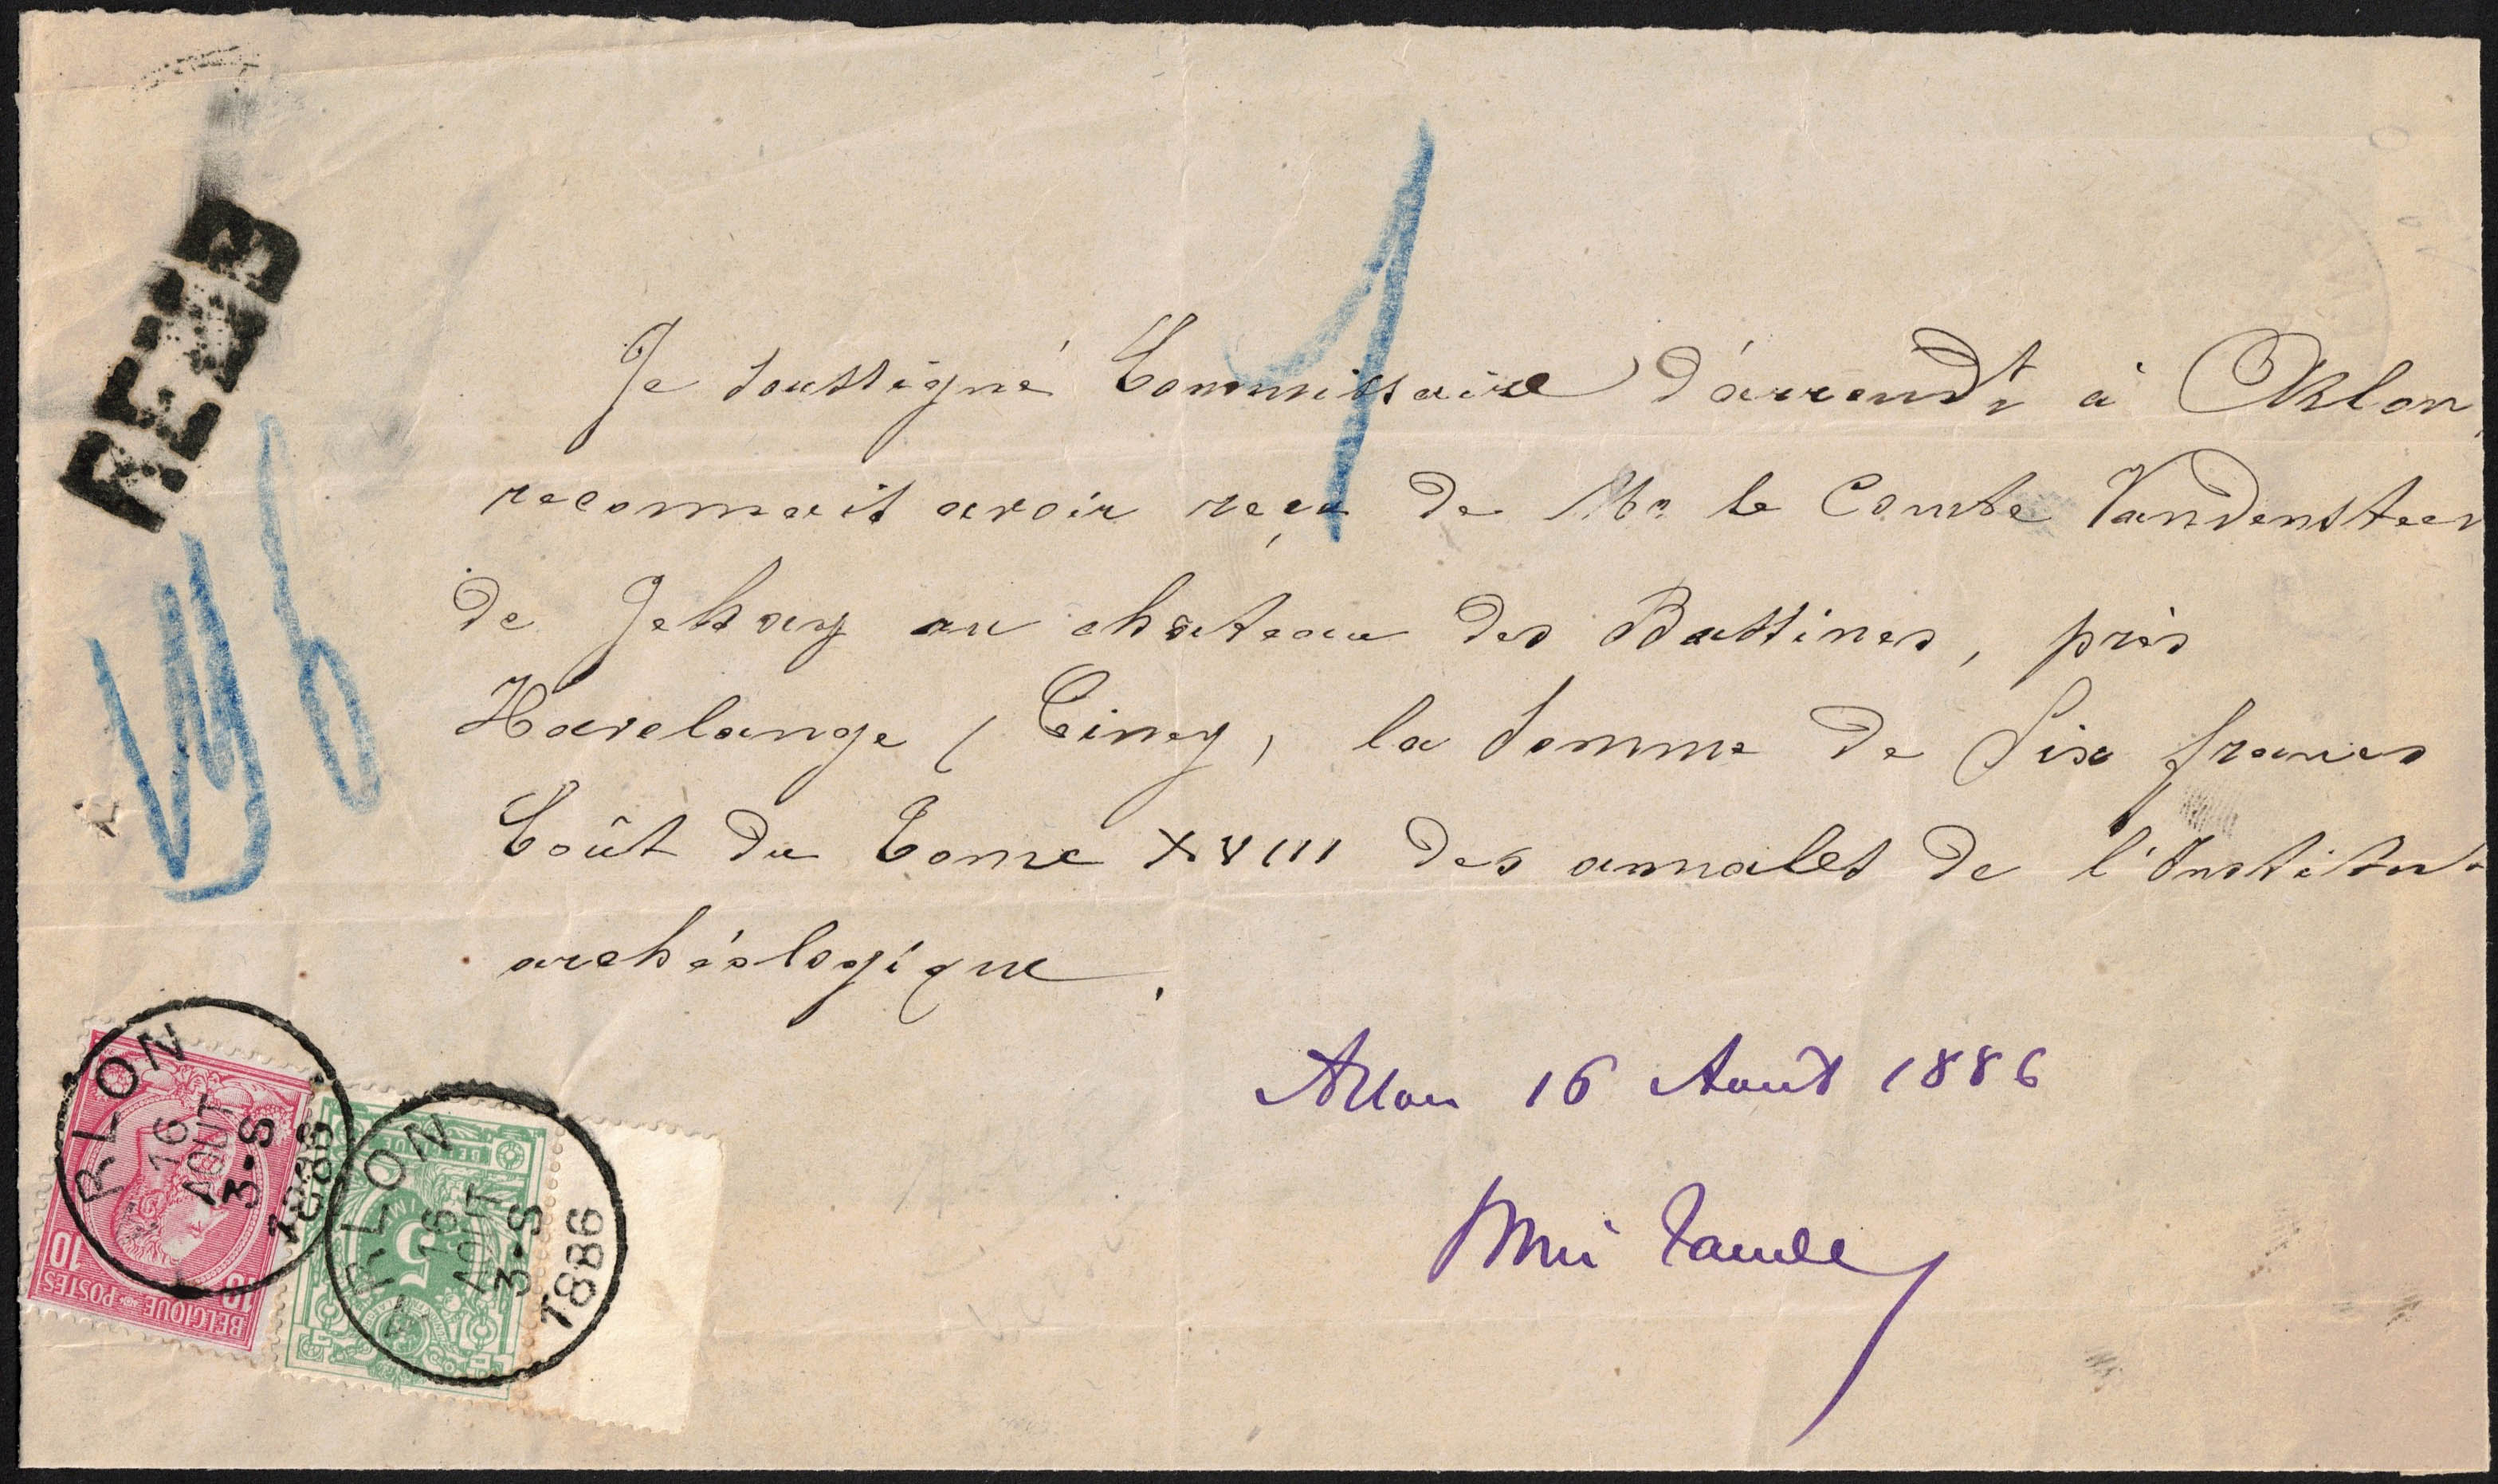 RET'D
1
6
Je soussigné Commissaire d'arrondt à Arlon,
reconnait avoir reçu de Mr le Comte Vandensteen
de Jehay au château des Bassines, près
Havelange (Ciney), la somme de Six francs
Coût du Tome XVIII des annales de l'Institut
archéologique.
Arlon 16 Août 1886
ARLON
16
AOUT
3-S
1886
BELGIQUE POSTES
10 10
ARLON
16
AOUT
3-S
1886
5